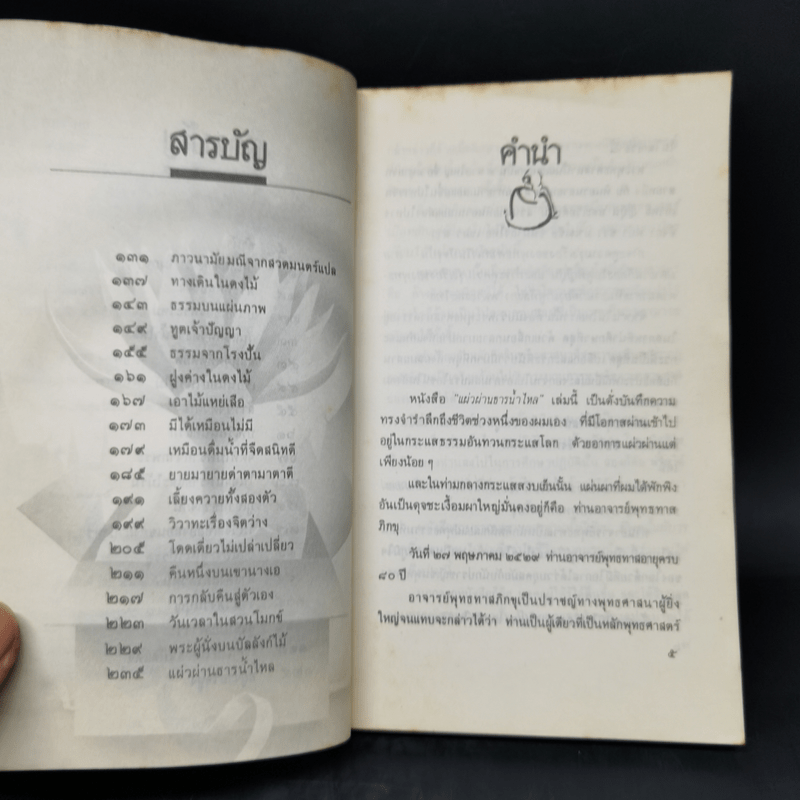 สารบัญ
๑๓๑ ภาวนามัยมณีจากสวดมนตร์แปล
๑๓๗ ทางเดินในดงไม้
๑๔๓ ธรรมบนแผ่นภาพ
๑๔๙ ทูตเจ้าปัญญา
๑๕๕ ธรรมจากโรงปั้น
๑๖๑ ฝูงค่างในดงไม้
๑๖๗ เอาไม้แหย่เสือ
๑๗๓ มีได้เหมือนไม่มี
๑๗๙ เหมือนดื่มน้ำที่จืดสนิทดี
๑๘๕ ยายมายายด่าตามาตาตี
๑๙๑ เลี้ยงควายทั้งสองตัว
๑๙๙ วิวาทะเรื่องจิตว่าง
๒๐๕ โดดเดี่ยวไม่เปล่าเปลี่ยว
๒๑๑ คืนหนึ่งบนเขานางเอ
๒๑๗ การกลับคืนสู่ตัวเอง
๒๒๓ วันเวลาในสวนโมกข์
๒๒๙ พระผู้นั่งบนบัลลังก์ไม้
๒๓๕ แผ่วผ่านธารน้ำไหล
คำนำ
หนังสือ "แผ่วผ่านธารน้ำไหล" เล่มนี้ เป็นดั่งบันทึกความ
ทรงจำรำลึกถึงชีวิตช่วงหนึ่งของผมเอง ที่มีโอกาสผ่านเข้าไป
อยู่ในกระแสธรรมอันทวนกระแสโลก ด้วยอาการแผ่วผ่านแต่
เพียงน้อย ๆ
และในท่ามกลางกระแสสงบเย็นนั้น แผ่นผาที่ผมได้พักพิง
อันเป็นดุจชะเงื้อมผาใหญ่มั่นคงอยู่ก็คือ ท่านอาจารย์พุทธทาส
ภิกขุ
วันที่ ๒๗ พฤษภาคม ๒๕๒๙ ท่านอาจารย์พุทธทาสอายุครบ
๘๐ ปี
อาจารย์พุทธทาสภิกขุเป็นปราชญ์ทางพุทธศาสนาผู้ยิ่ง
ใหญ่จนแทบจะกล่าวได้ว่า ท่านเป็นผู้เดียวที่เป็นหลักพุทธศาสตร์
๕